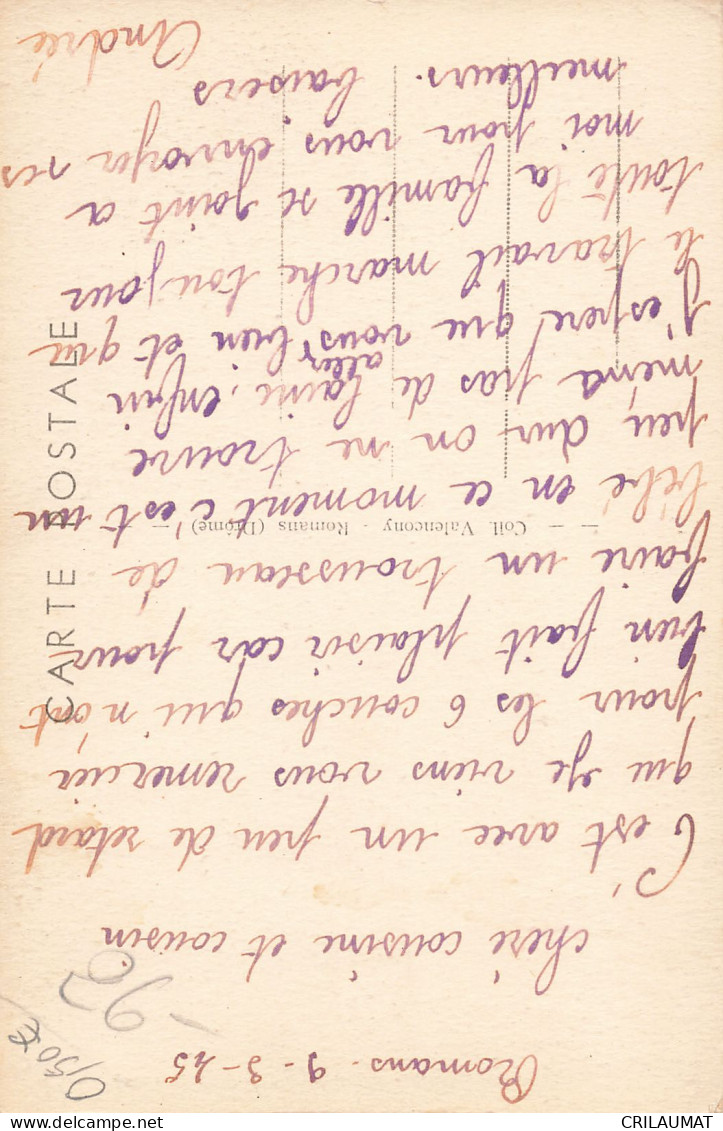 Romans 9-3-45
chère cousine et cousin
C'est avec un peu de retard
que je viens vous remercier
pour les 6 couches qui n'ont
bien fait plaisir car pour
faire un trousseau de
bébé en ce moment c'est un
peu dur on ne trouve
meme pas de laine, enfin
j'espere que vous aller bien et que
le travail marche toujour
toute la famille se joint a
moi pour vous envoyer ses
meilleurs. baisers
André
CARTE POSTALE
— — Coll. Valencony - Romans (Drôme) — —
0,50 €
-98
CRILAUMAT